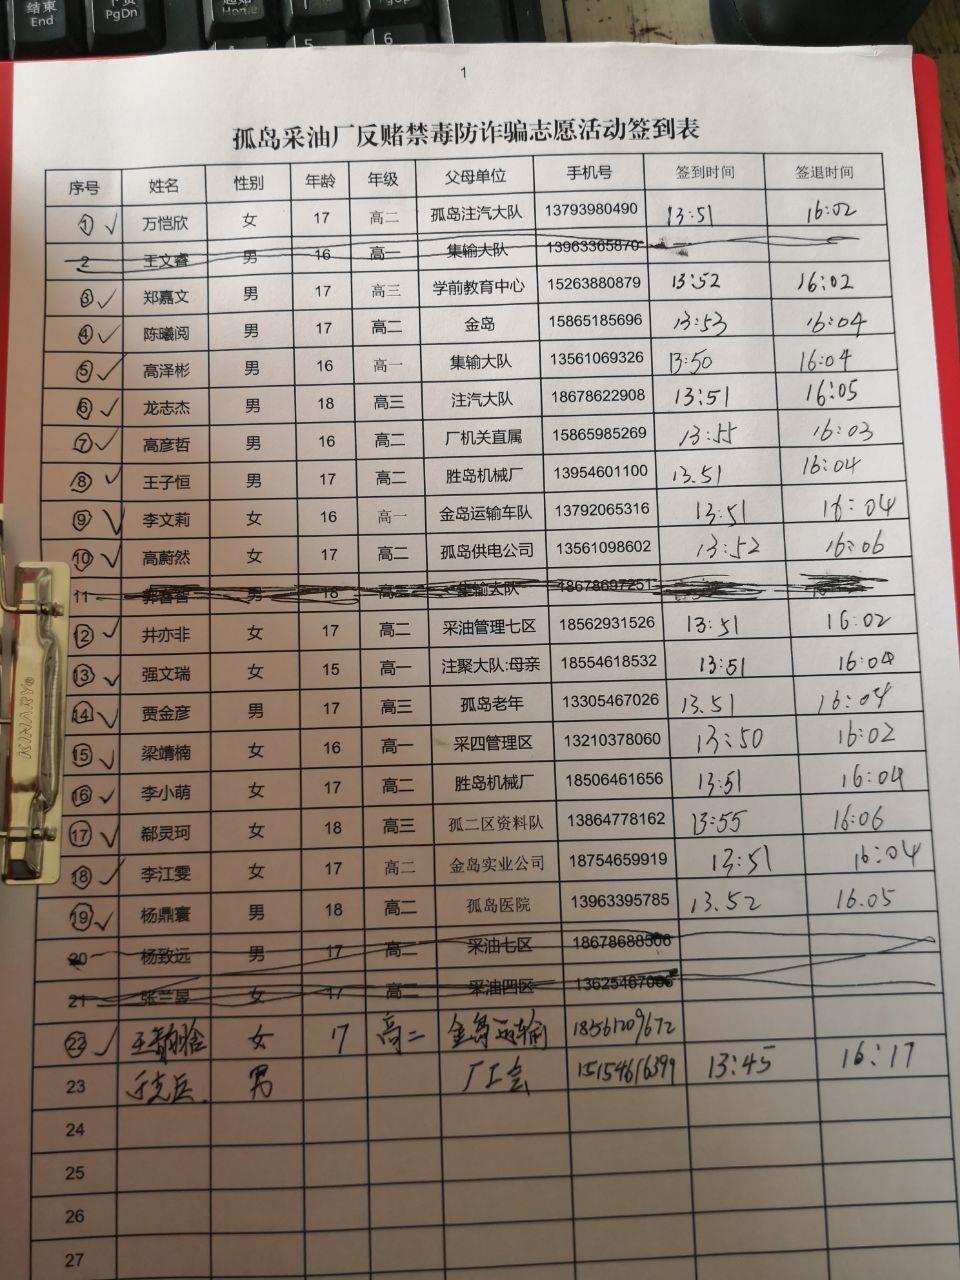 结束
End
PgDn
Home
6
1
孤岛采油厂反赌禁毒防诈骗志愿活动签到表
序号 姓名 性别 年龄 年级 父母单位 手机号 签到时间 签退时间
1 万恺欣 女 17 高二 孤岛注汽大队 13793980490 13:51 16:02
2 王文睿 男 16 高一 集输大队 13963365870
3 郑嘉文 男 17 高三 学前教育中心 15263880879 13:52 16:02
4 陈曦阅 男 17 高二 金岛 15865185696 13:53 16:04
5 高泽彬 男 16 高一 集输大队 13561069326 13:50 16:04
6 龙志杰 男 18 高三 注汽大队 18678622908 13:51 16:05
7 高彦哲 男 16 高二 厂机关直属 15865985269 13:55 16:03
8 王子恒 男 17 高二 胜岛机械厂 13954601100 13.51 16:04
9 李文莉 女 16 高一 金岛运输车队 13792065316 13:51 16:04
10 高蔚然 女 17 高二 孤岛供电公司 13561098602 13:52 16:06
11 男 18 高三 集输大队 18678697251
12 井亦非 女 17 高二 采油管理七区 18562931526 13:51 16:02
13 强文瑞 女 15 高一 注聚大队:母亲 18554618532 13:51 16:04
14 贾金彦 男 17 高三 孤岛老年 13305467026 13.51 16:04
15 梁靖楠 女 16 高一 采四管理区 13210378060 13:50 16:02
16 李小萌 女 17 高二 胜岛机械厂 18506461656 13:51 16:04
17 郗灵珂 女 18 高三 孤二区资料队 13864778162 13:55 16:06
18 李江雯 女 17 高二 金岛实业公司 18754659919 13:51 16:04
19 杨鼎寰 男 18 高二 孤岛医院 13963395785 13.52 16.05
20 杨致远 男 17 高二 采油七区
21 张兰昱 女 17 高二 采油四区
22 女 17 高二 金岛运输 18561209672
23 男 厂工会 15154616399 13:45 16:17
24
25
26
27
KINARY®